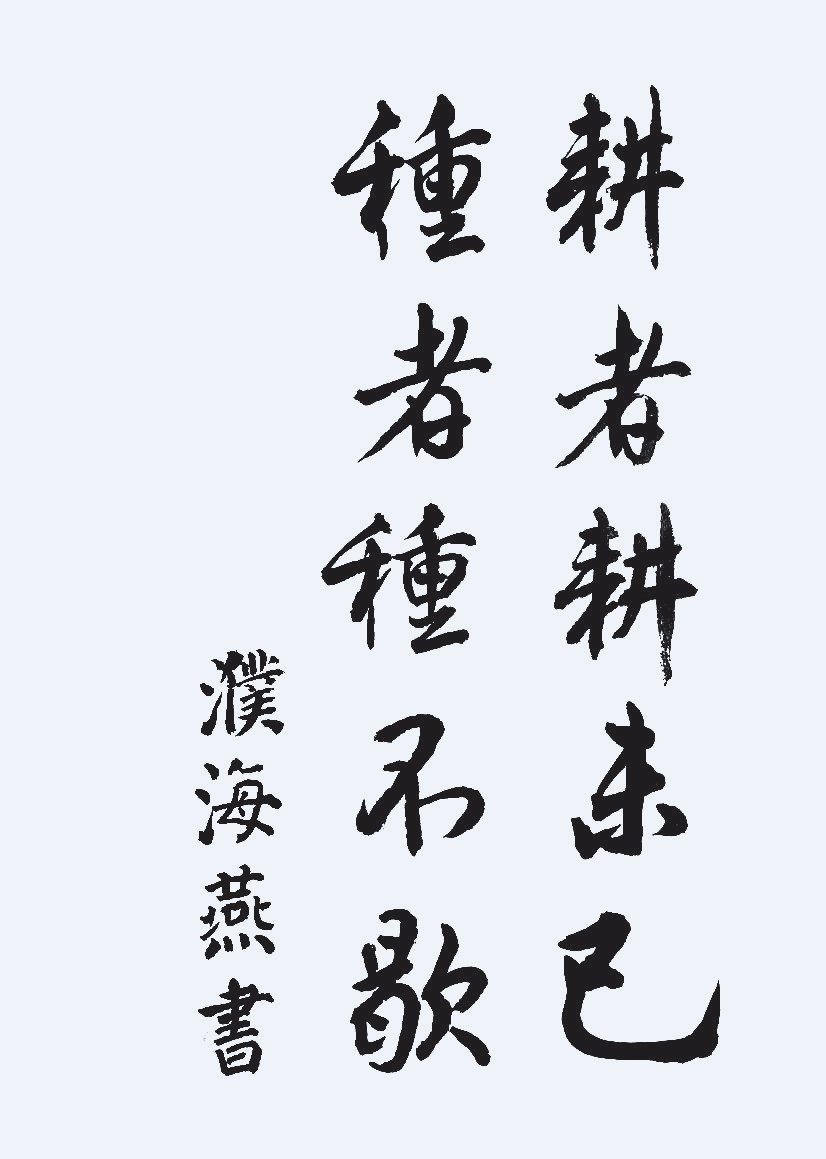 耕者耕未已
種者種不歇
濮海燕書